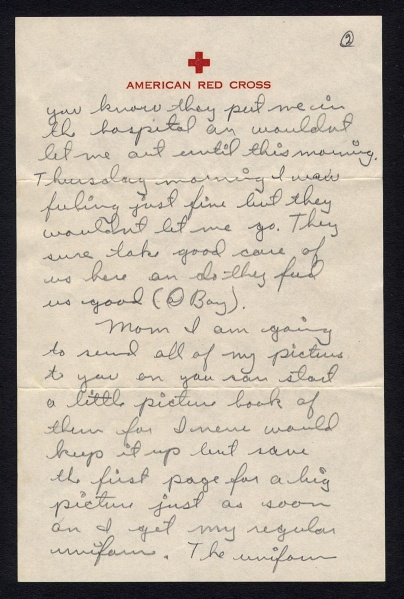 2
AMERICAN RED CROSS
you know they put me in
the hospital an wouldnt
let me out until this morning.
Thursday morning I was
feeling just fine but they
wouldnt let me go. They
sure take good care of
us here an do they feed
us good (O Boy).
Mom I am going
to send all of my picture
to you en you can start
a little picture book of
them for I never would
keep it up but save
the first page for a big
picture just as soon
an I get my regular
uniform. The uniform